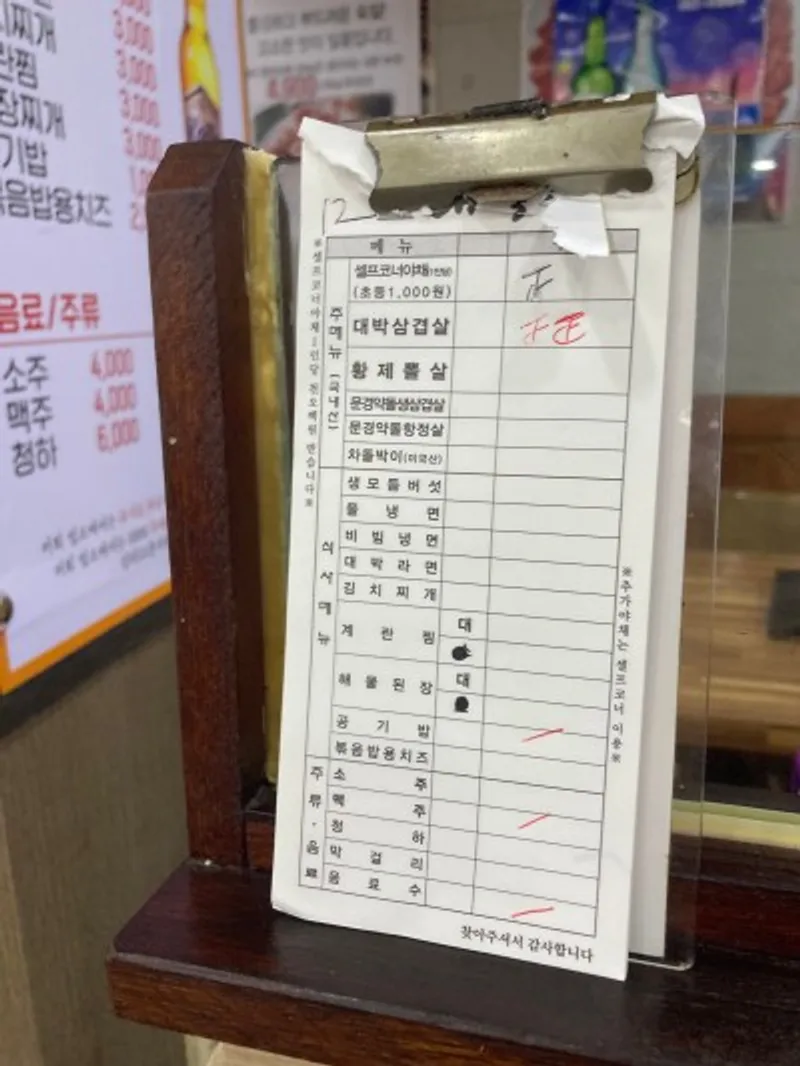 찌개 3,000
란찜 3,000
장찌개 3,000
기밥
음밥용치즈
음료/주류
소주 4,000
맥주 4,000
청하 6,000
4,000
12
메뉴
셀프코너야채(1인당)
(초등1,000원) 正
대박삼겹살 正正
황제뽈살
문경약돌생삼겹살
문경약돌항정살
차돌박이(미국산)
주메뉴(국내산)
생모듬버섯
물냉면
비빔냉면
대박라면
김치찌개
계란찜 대
해물된장 대
공기밥
볶음밥용치즈
식사메뉴
소주
맥주
청하
막걸리
음료수
주류·음료
※추가야채는 셀프코너 이용※
찾아주셔서 감사합니다